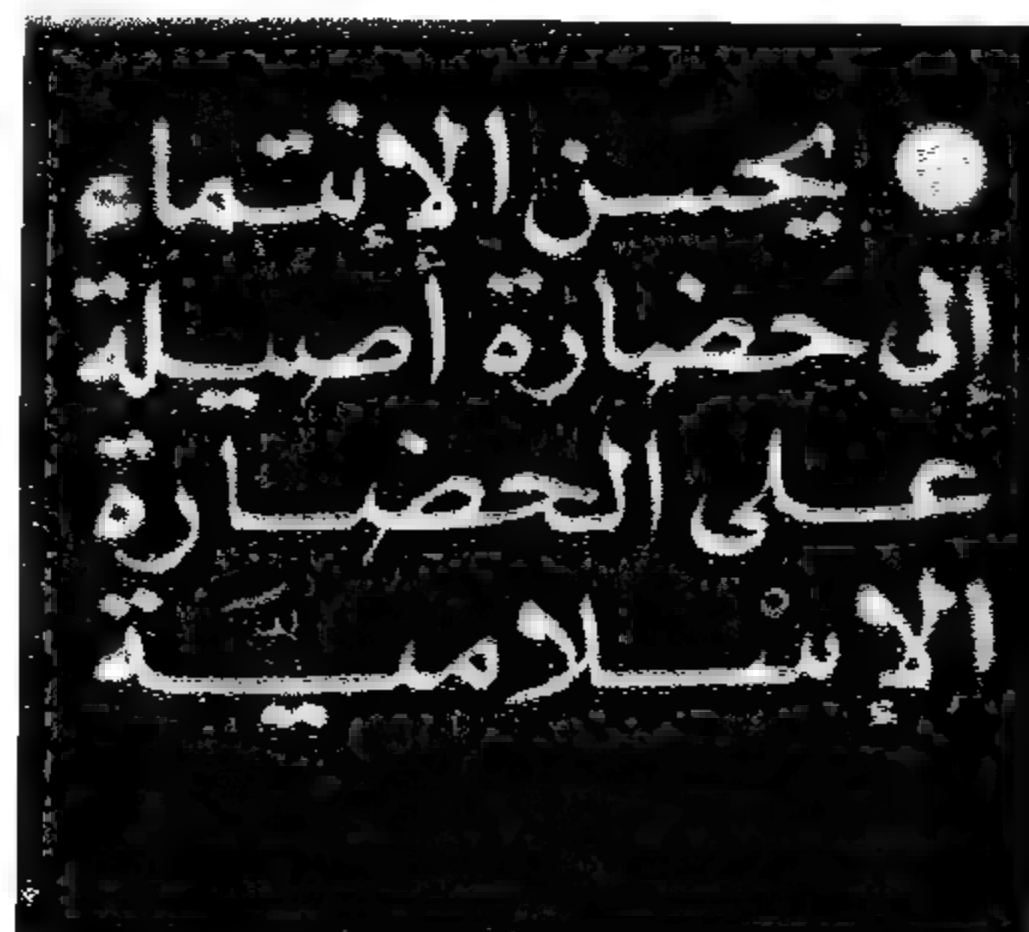 ● يحسن الإنتماء
الى حضارة أصيلة
على الحضارة
الإسلامية